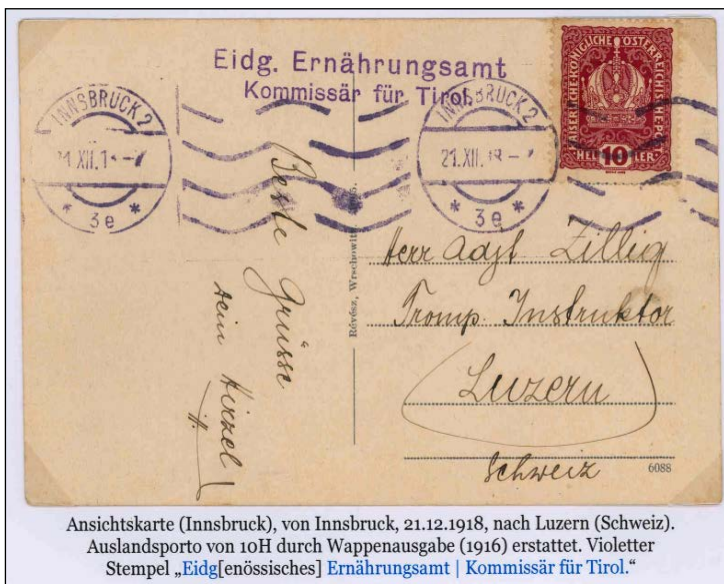 Eidg. Ernährungsamt
Kommissär für Tirol.
INNSBRUCK 2
21.XII.1 - 7
* 3e *
INNSBRUCK 2
21.XII.18 - 7
* 3e *
KAISERLICHE KÖNIGLICHE ÖSTERREICHISCHE POST
HELLER
10
Beste Grüsse
dein Hirzel
Révész, Wrschowitz
Herr Adjt Zillig
Tromp. Instruktor
Luzern
Schweiz
6088
Ansichtskarte (Innsbruck), von Innsbruck, 21.12.1918, nach Luzern (Schweiz).
Auslandsporto von 10H durch Wappenausgabe (1916) erstattet. Violetter
Stempel „Eidg[enössisches] Ernährungsamt | Kommissär für Tirol.“